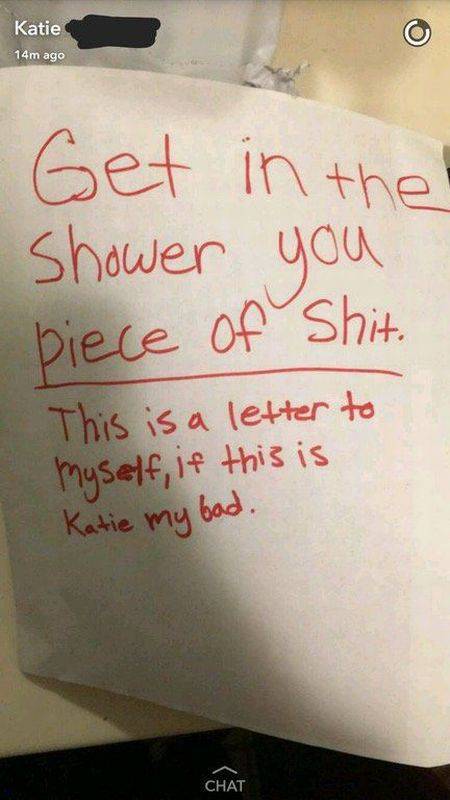 Katie
14m ago
Get in the
Shower you
piece of Shit.
This is a letter to
myself, if this is
Katie my bad.
CHAT